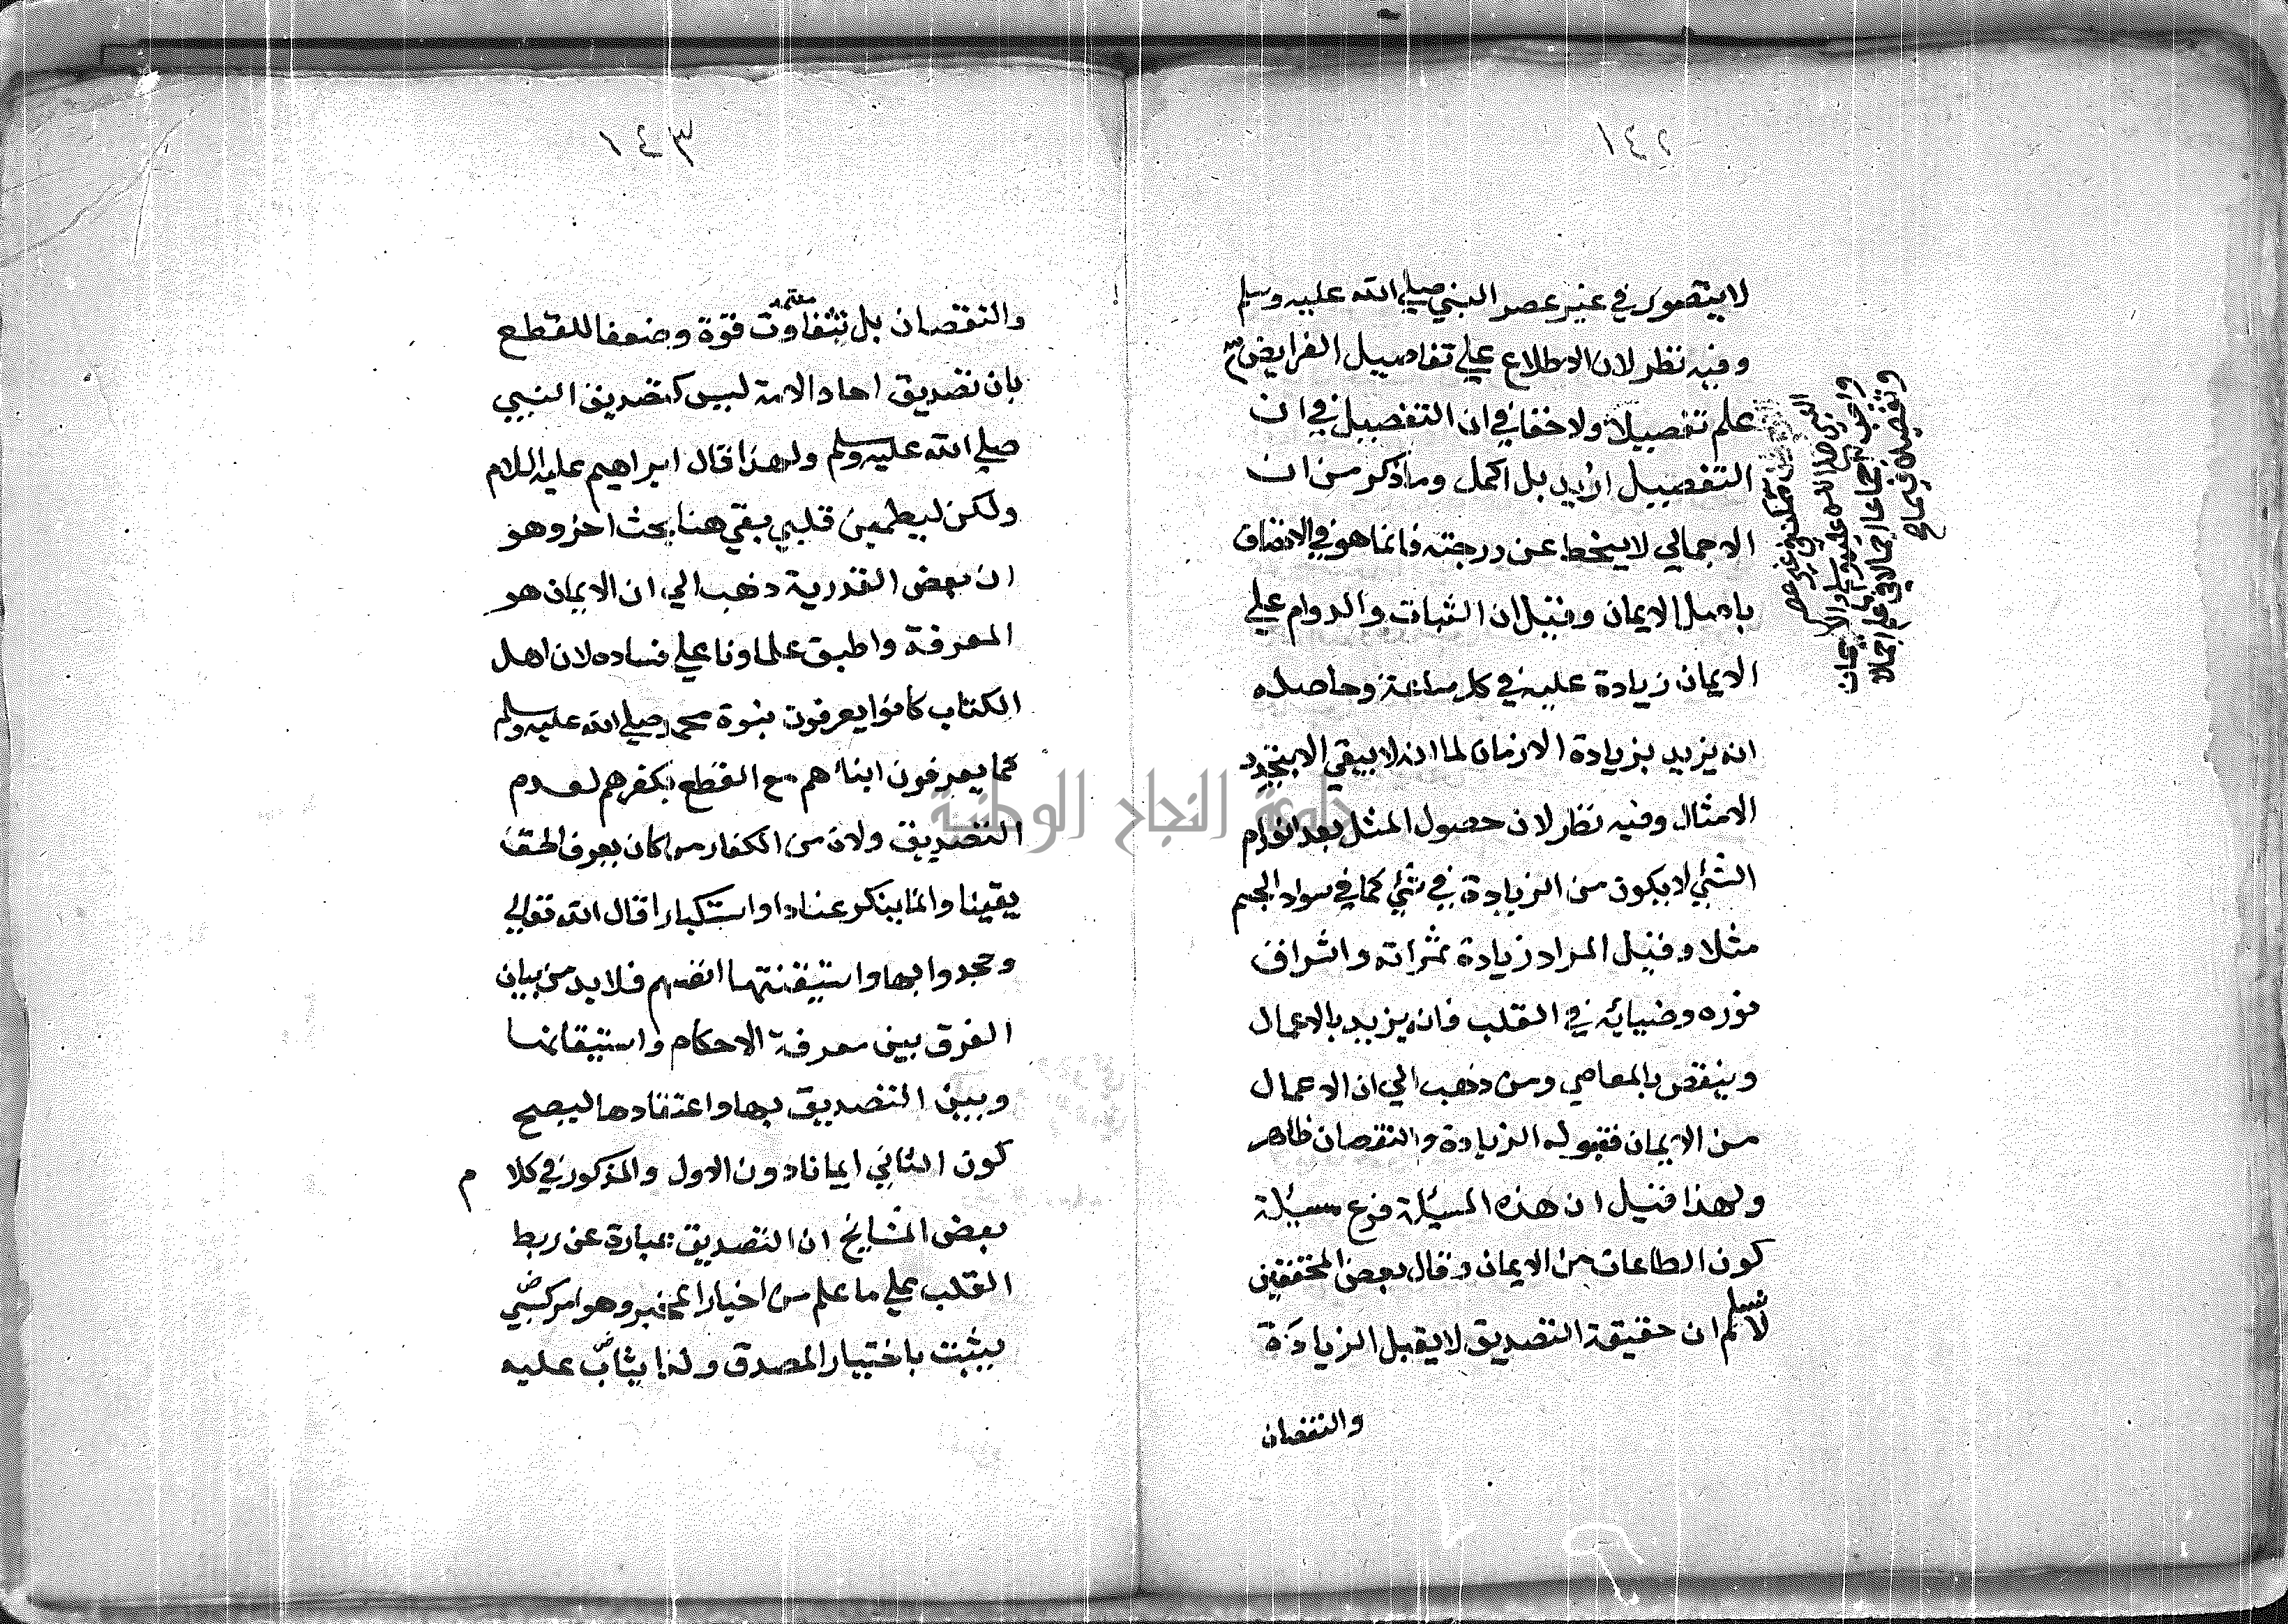 ١٤٢
لا يتصور في غير عصر النبي صلي الله عليه وسلم
وفيه نظر لان الاطلاع علي تفاصيل الفرايض
علم تفصيلا ولا خفا في ان التفصيل في ان
التفصيل ازيد بل اكمل وما ذكر من ان
الاجمالي لا ينحط عن درجته فانما هو في الاتصاف
باصل الايمان وقيل ان الثبات والدوام علي
الايمان زيادة عليه في كل ساعة وحاصله
انه يزيد بزيادة الازمان لما انه لا يبقي الا بتجدد
الامثال وفيه نظر لان حصول المثل بعد انعدام
الشئي لا يكون من الزيادة في شئي كما في سواد الجسم
مثلا وقيل المراد زيادة ثمراته واشراق
نوره وضيائه في القلب فانه يزيد بالاعمال
وينقص بالمعاصي ومن ذهب الي ان الاعمال
من الايمان فقبوله الزيادة والنقصان ظاهر
ولهذا قيل ان هذه المسئلة فرع مسئلة
كون الطاعات من الايمان وقال بعض المحققين
لا نسلم ان حقيقة التصديق لا يقبل الزيادة
والنقصان
ممكن في غير عصر
النبي صلي الله عليه وسلم والايمان
واجب اجمالا فيما علم اجمالا
وتفصيلا فيما علم
١٤٣
والنقصان بل تتفاوت قوة وضعفا للقطع
بان تصديق احاد الامة ليس كتصديق النبي
صلي الله عليه وسلم ولهذا قال ابراهيم عليه السلام
ولكن ليطمين قلبي بقي هنا بحث اخر وهو
ان بعض القدرية ذهب الي ان الايمان هو
المعرفة واطبق علماونا علي فساده لان اهل
الكتاب كانوا يعرفون بنوة محمد صلي الله عليه وسلم
كما يعرفون ابنائهم مع القطع بكفرهم لعدم
التصديق ولان من الكفار من كان يعرف الحق
يقينا وانما ينكر عنادا واستكبارا قال الله تعالي
وجحدوا بها واستيقنتها انفسهم فلا بد من بيان
الفرق بين معرفة الاحكام واستيقانها
وبين التصديق بها واعتقادها ليصح
كون الثاني ايمانا دون الاول والمذكور في كلام
بعض المشايخ ان التصديق عبارة عن ربط
القلب علي ما علم من اخبار المخبر وهو امر كسبي
يثبت باختيار المصدق ولذا يثاب عليه
جامعة النجاح الوطنية